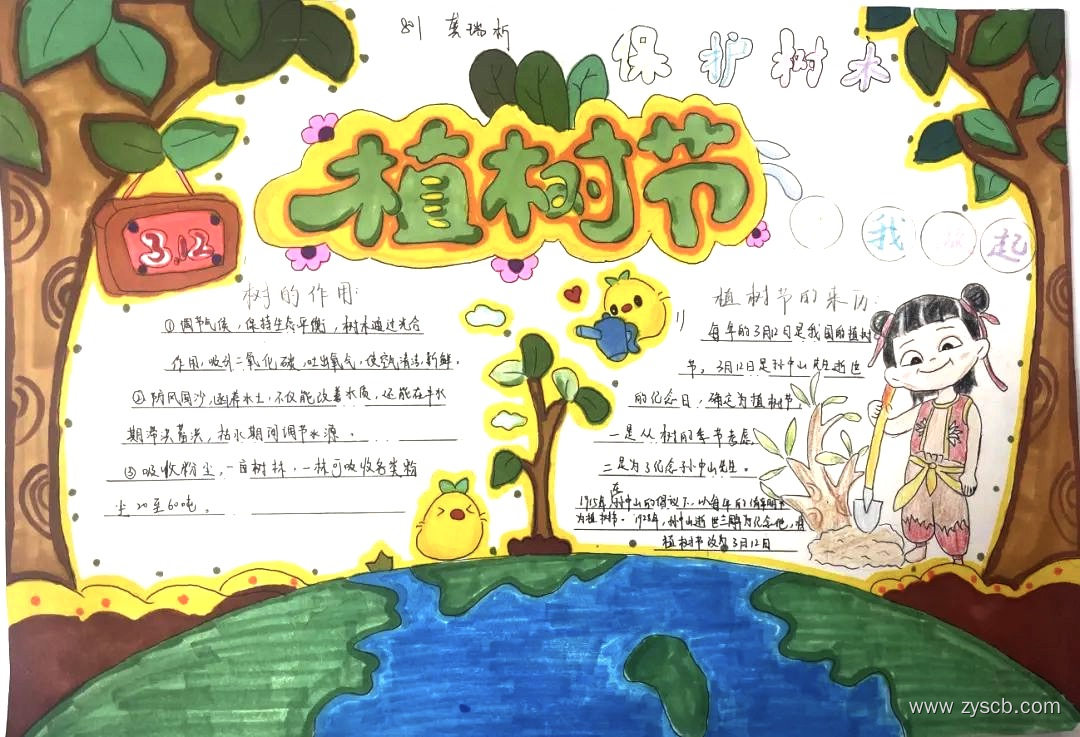 801 龚瑞析
保护树木
植树节
3.12
我 起
树的作用:
①调节气候,保持生态平衡,树木通过光合
作用,吸外二氧化碳,吐出氧气,使空气清洁,新鲜。
②防风固沙,涵养水土,不仅能改善水质,还能在丰水
期滞洪蓄洪,枯水期间调节水源。
③吸收粉尘,一亩树林,一林可吸收各类粉
尘20至60吨。
植树节的来历:
每年的3月12日是我国的植树
节。3月12日是孙中山先生逝世
的纪念日,确定为植树节,
一是从树的季节考虑,
二是为了纪念孙中山先生。
1915年,在孙中山的倡议下,以每年的清明节
为植树节。1928年,孙中山逝世三周年为纪念他,将
植树节改为3月12日
www.zyscb.com